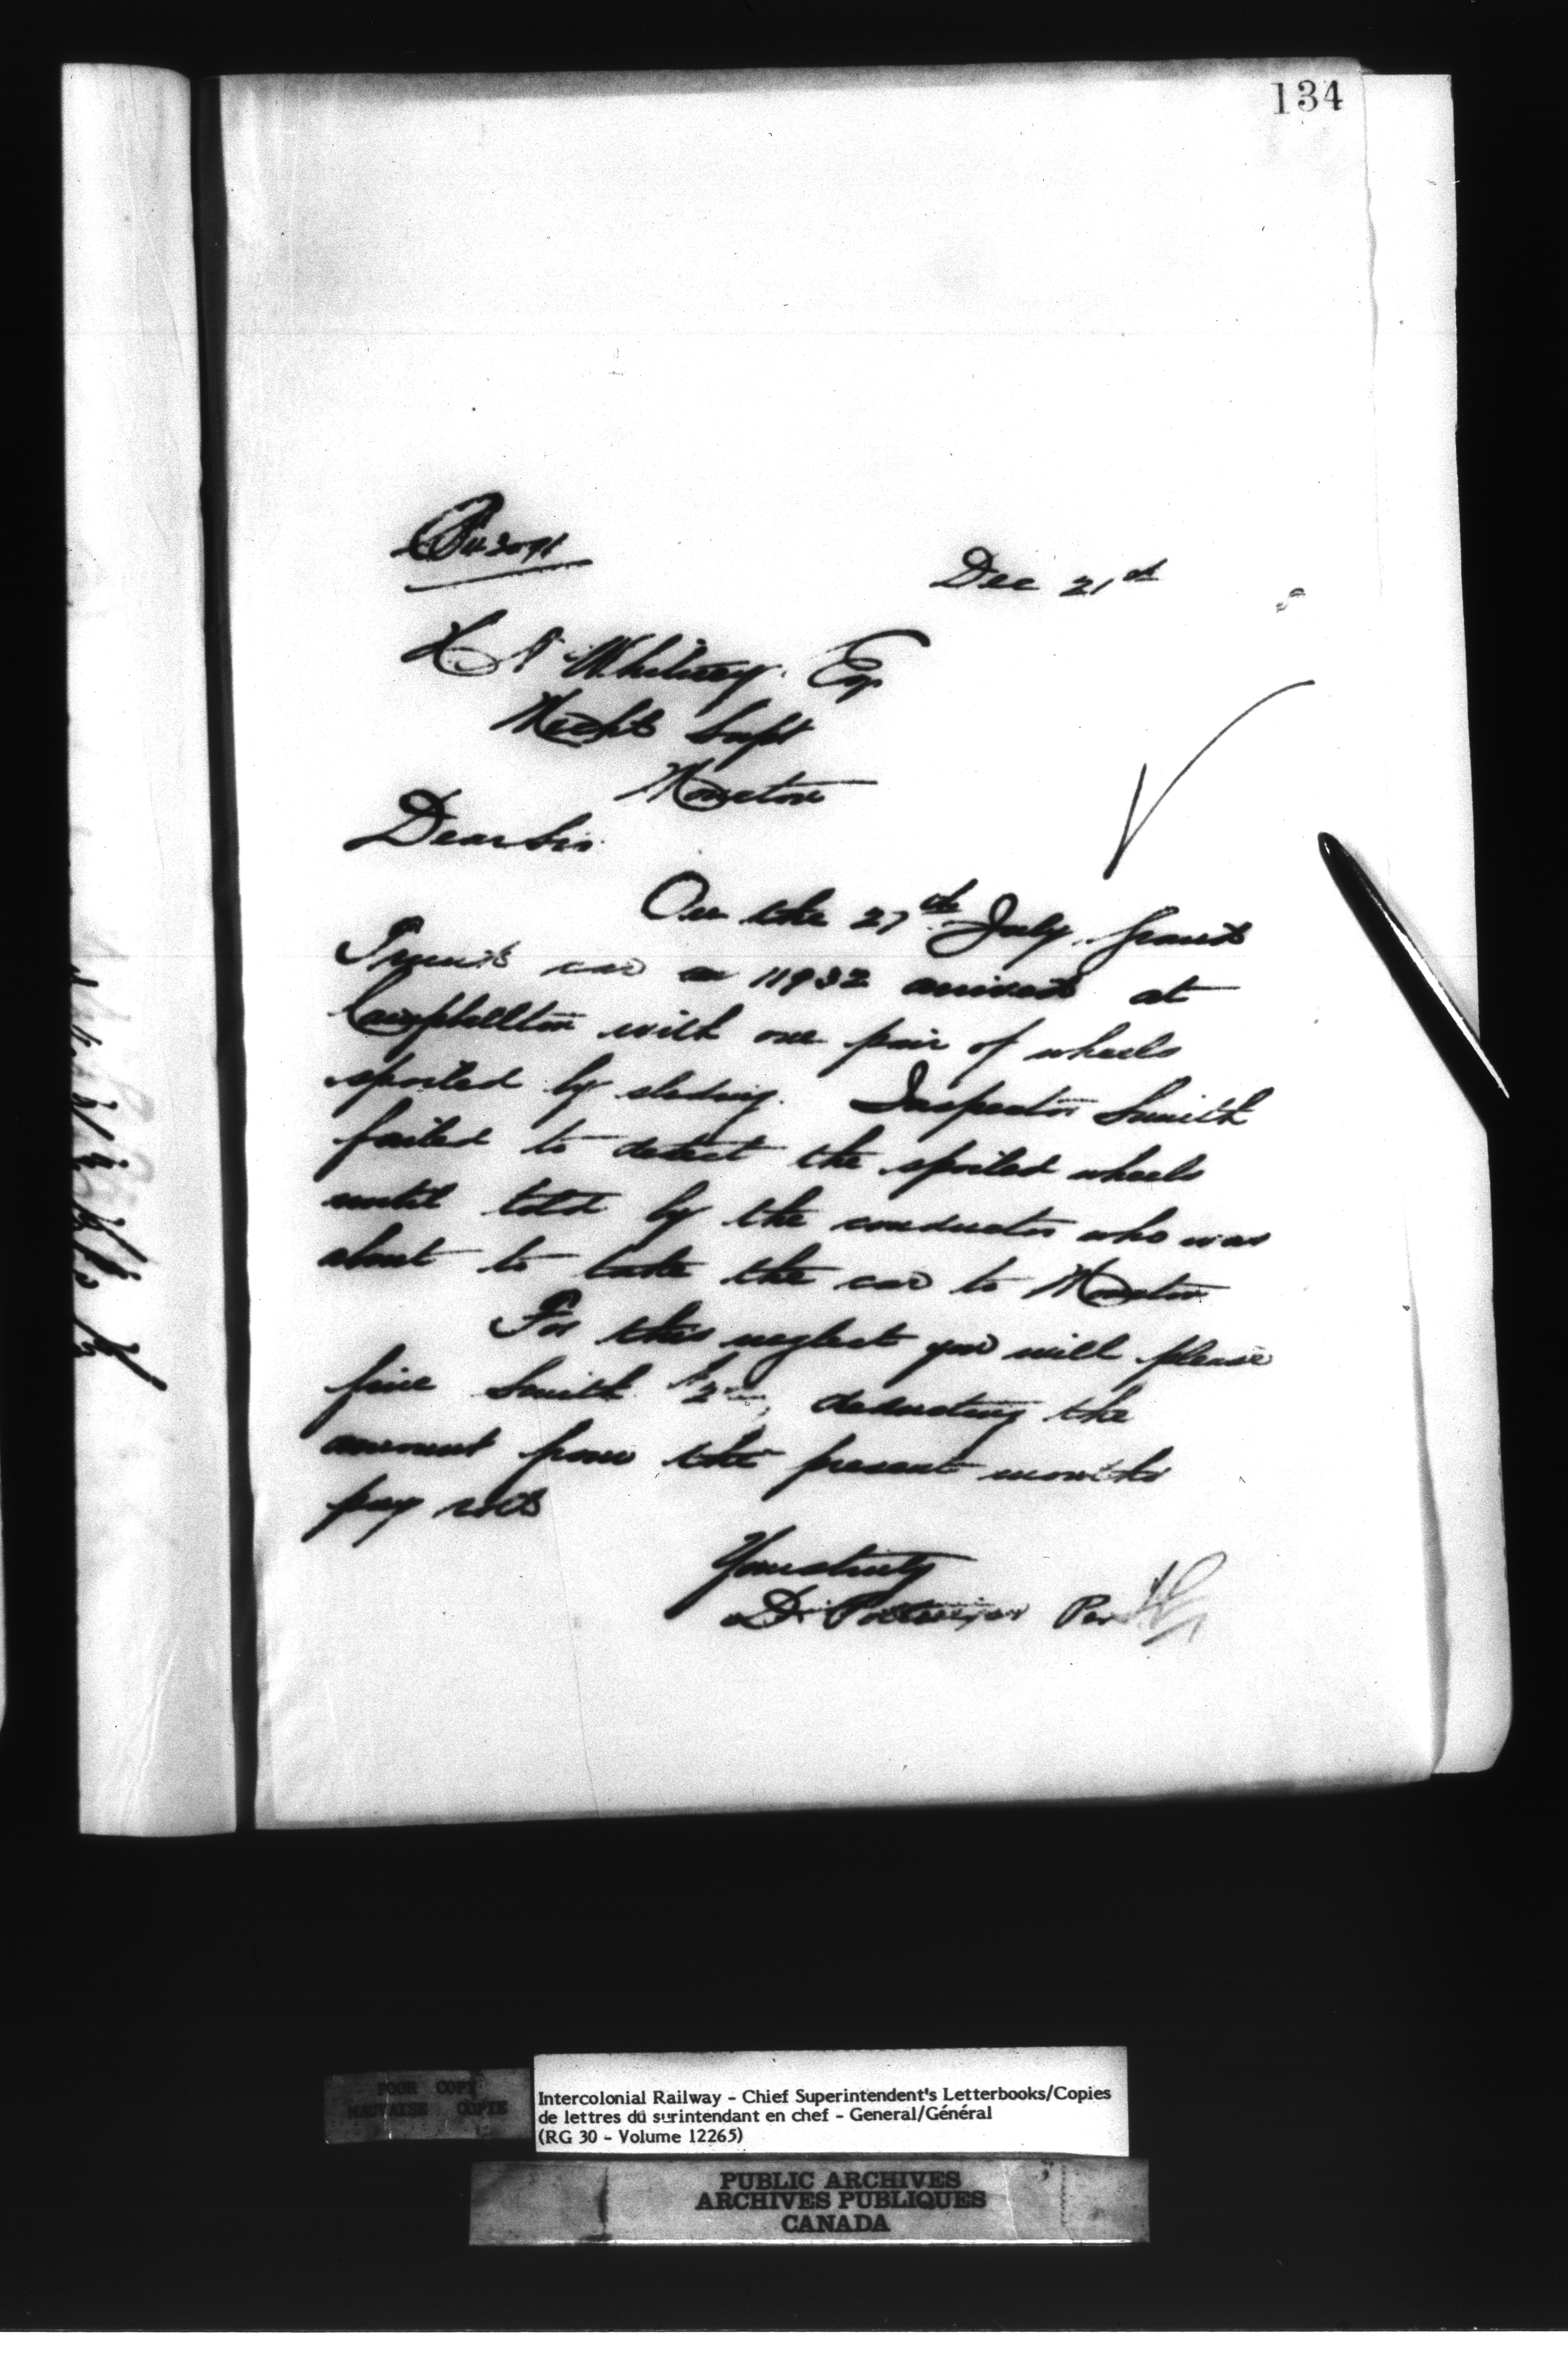 134
Dec 21st
H A Whitney Esq
Mechl Supt
Moncton
Dear Sir
On the 27th July, Grand
Trunk car 11932 arrived at
Campbellton with one pair of wheels
spoiled by sleding. Inspector Smith
failed to detect the spoiled wheels
until told by the conductor who was
about to take the car to Moncton
For this neglect you will please
fine Smith $2 deducting the
amount from the present months
pay rolls
Yours truly
D. Pottinger Per
POOR COPY
MAUVAISE COPIE
Intercolonial Railway - Chief Superintendent's Letterbooks/Copies
de lettres du surintendant en chef - General/Général
(RG 30 - Volume 12265)
PUBLIC ARCHIVES
ARCHIVES PUBLIQUES
CANADA